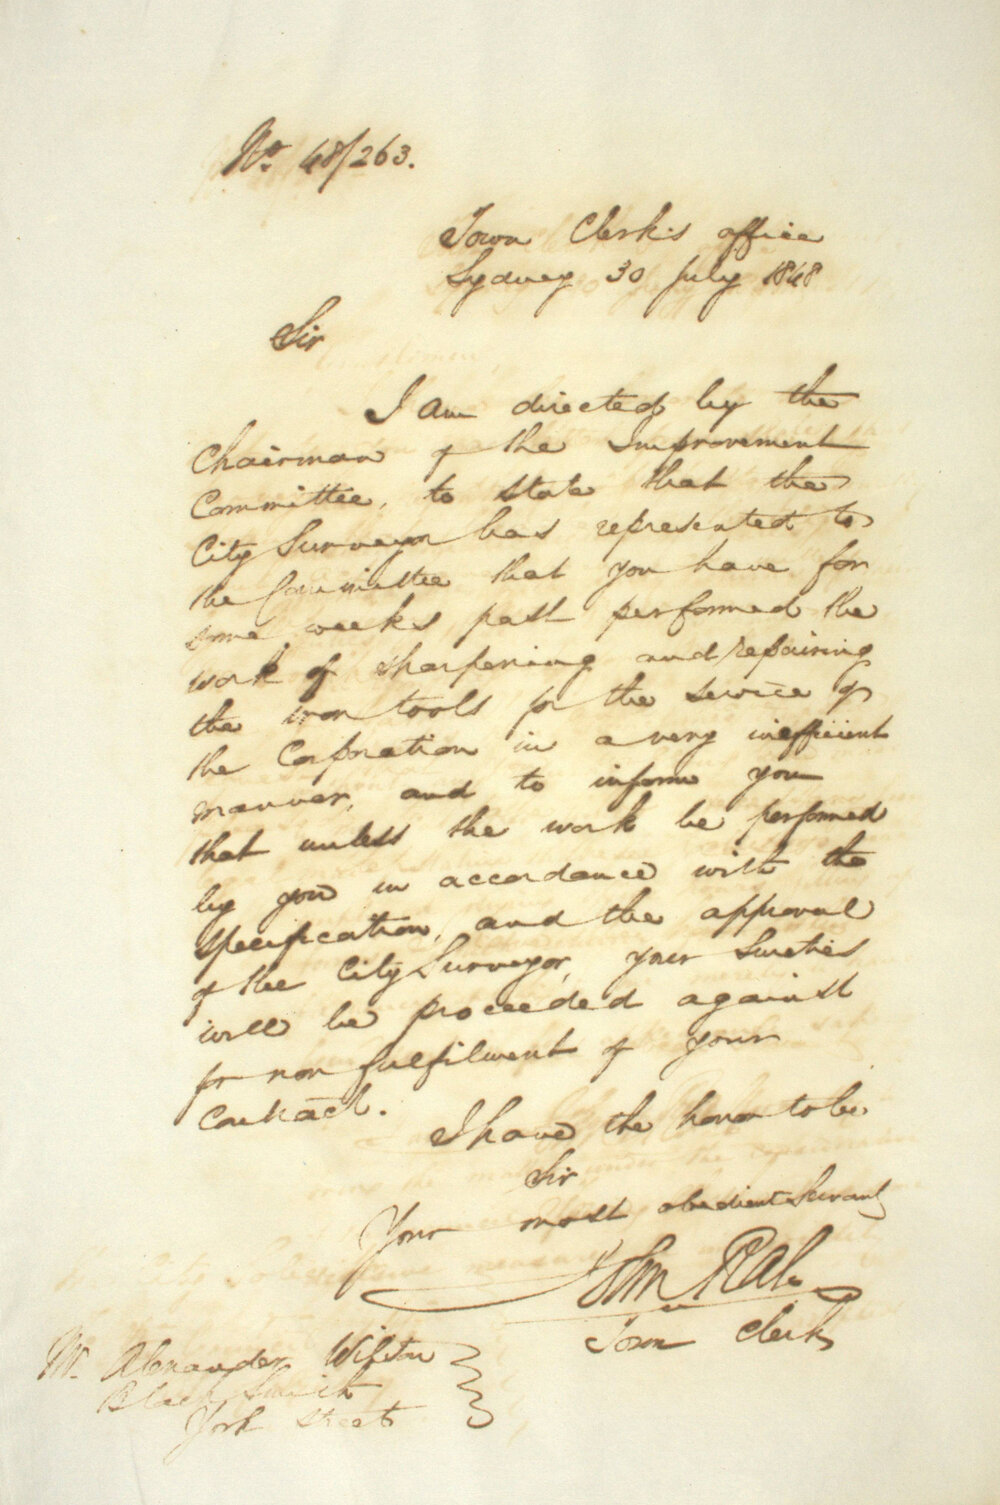 No. 48/263.
Town Clerk's office
Sydney 30 July 1848
Sir
I am directed by the
Chairman of the Improvement
Committee, to state that the
City Surveyor has represented to
the Committee that you have for
some weeks past performed the
work of sharpening and repairing
the iron tools for the service of
the Corporation in a very inefficient
manner, and to inform you
that unless the work be performed
by you in accordance with the
specification, and the approval
of the City Surveyor, your Sureties
will be proceeded against
for non fulfilment of your
Contract.
I have the honor to be
Sir
Your most obedient Servant
John
Town Clerk
Mr. Alexander
Black Smith
York Street